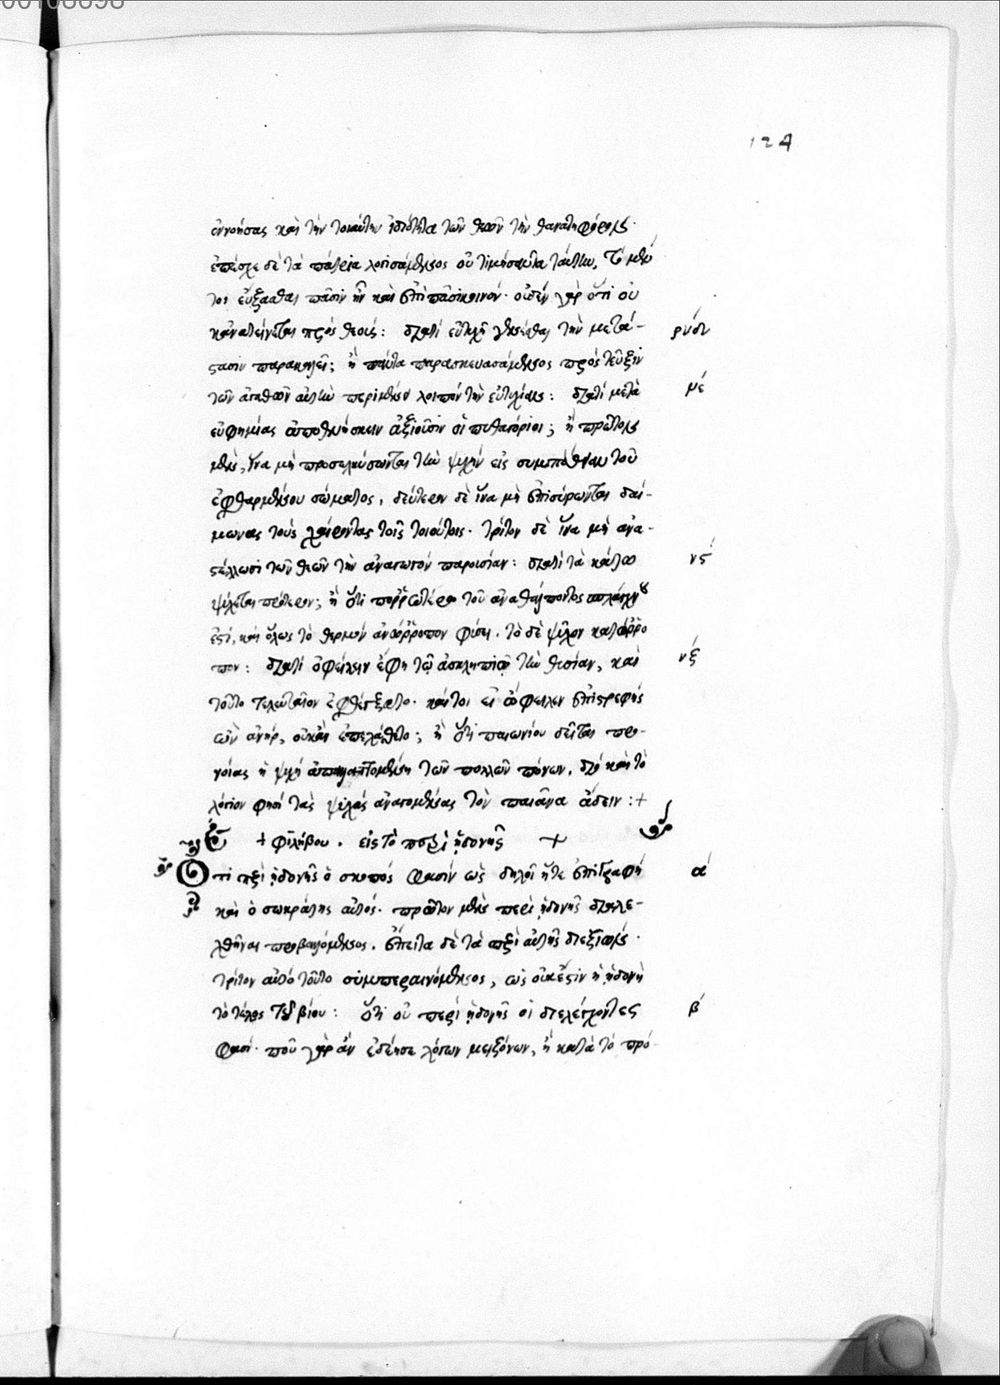 124
ἐννοήσας καὶ τὴν τοιαύτην ἰδιότητα τῶν θεῶν τὴν θανατηφόρον.
ἐπέσχε δὲ τὰ πάτρια λογισάμενος οὐ τιμήσαντα ταύτην, τὸ μέν
τοι εὔξασθαι πᾶσιν ἦν καὶ ἐπὶ πᾶσι κοινόν· οὐδὲν γὰρ ὅτι οὐ
κἀνατείνεται πρὸς θεούς: διατί εὐτυχῆ γενέσθαι τὴν μετά-
στασιν παρακαλεῖ; ἢ πάντα παρασκευασάμενος πρὸς τεῦξιν
τῶν ἀγαθῶν αὐτὴν περιμένει λοιπὸν τὴν εὐτυχίαν: διατί μετὰ
με
εὐφημίας ἀποθνήσκειν ἀξιοῦσιν οἱ πυθαγόρειοι; ἢ πρῶτον
μὲν, ἵνα μὴ προσελκύσωνται τὴν ψυχὴν εἰς συμπάθειαν τοῦ
ἐφθαρμένου σώματος, δεύτερον δὲ ἵνα μὴ ἐπισύρωνται δαί-
μωνας τοὺς χαίροντας τοῖς τοιούτοις. τρίτον δὲ ἵνα μὴ ἀνα-
στέλλωσι τῶν θεῶν τὴν ἀναγωγὸν παρουσίαν: διατί τὰ κάτω
νς
ψύχεται πρότερον; ἢ ὅτι πορρωτέρω τοῦ ἀναθάλποντος σπλάγχνου
ἐστί, καὶ ὅλως τὸ θερμὸν ἀνώρροπον φύσει. τὸ δὲ ψῦχον κατώρρο
πον: διατί ὀφείλειν ἔφη τῷ ἀσκληπιῷ τὴν θυσίαν, καὶ
νξ
τοῦτο τελευταῖον ἐφθέγξατο. καίτοι εἰ ὤφειλεν ἐπιστρεφὴς
ὢν ἀνήρ, οὐκ ἂν ἐπελάθετο; ἢ ὅτι παιωνίου δεῖται προ-
νοίας ἡ ψυχὴ ἀπαλλαττομένη τῶν πολλῶν πόνων, διὸ καὶ τὸ
λόγιόν φησι τὰς ψυχὰς ἀναγομένας τὸν παιᾶνα ᾄδειν :+
+ φιλήβου. εἰς τὸ περὶ ἡδονῆς +
Ὅτι περὶ ἡδονῆς ὁ σκοπός φασὶν ὡς δηλοῖ ἥτε ἐπιγραφὴ
α
καὶ ὁ σωκράτης αὐτός. πρῶτον μὲν περὶ ἡδονῆς διαλε-
χθῆναι προβαλλόμενος. ἔπειτα δὲ τὰ περὶ αὐτῆς διεξιών.
τρίτον αὐτὸ τοῦτο συμπεραινόμενος, ὡς οὐκ ἔστιν ἡ ἡδονὴ
τὸ τέλος τοῦ βίου: ὅτι οὐ περὶ ἡδονῆς οἱ διελέγχοντες
β
φασί. ποῦ γὰρ ἂν ἐδέησε λόγων μειζόνων, ἢ κατὰ τὸ πρό-